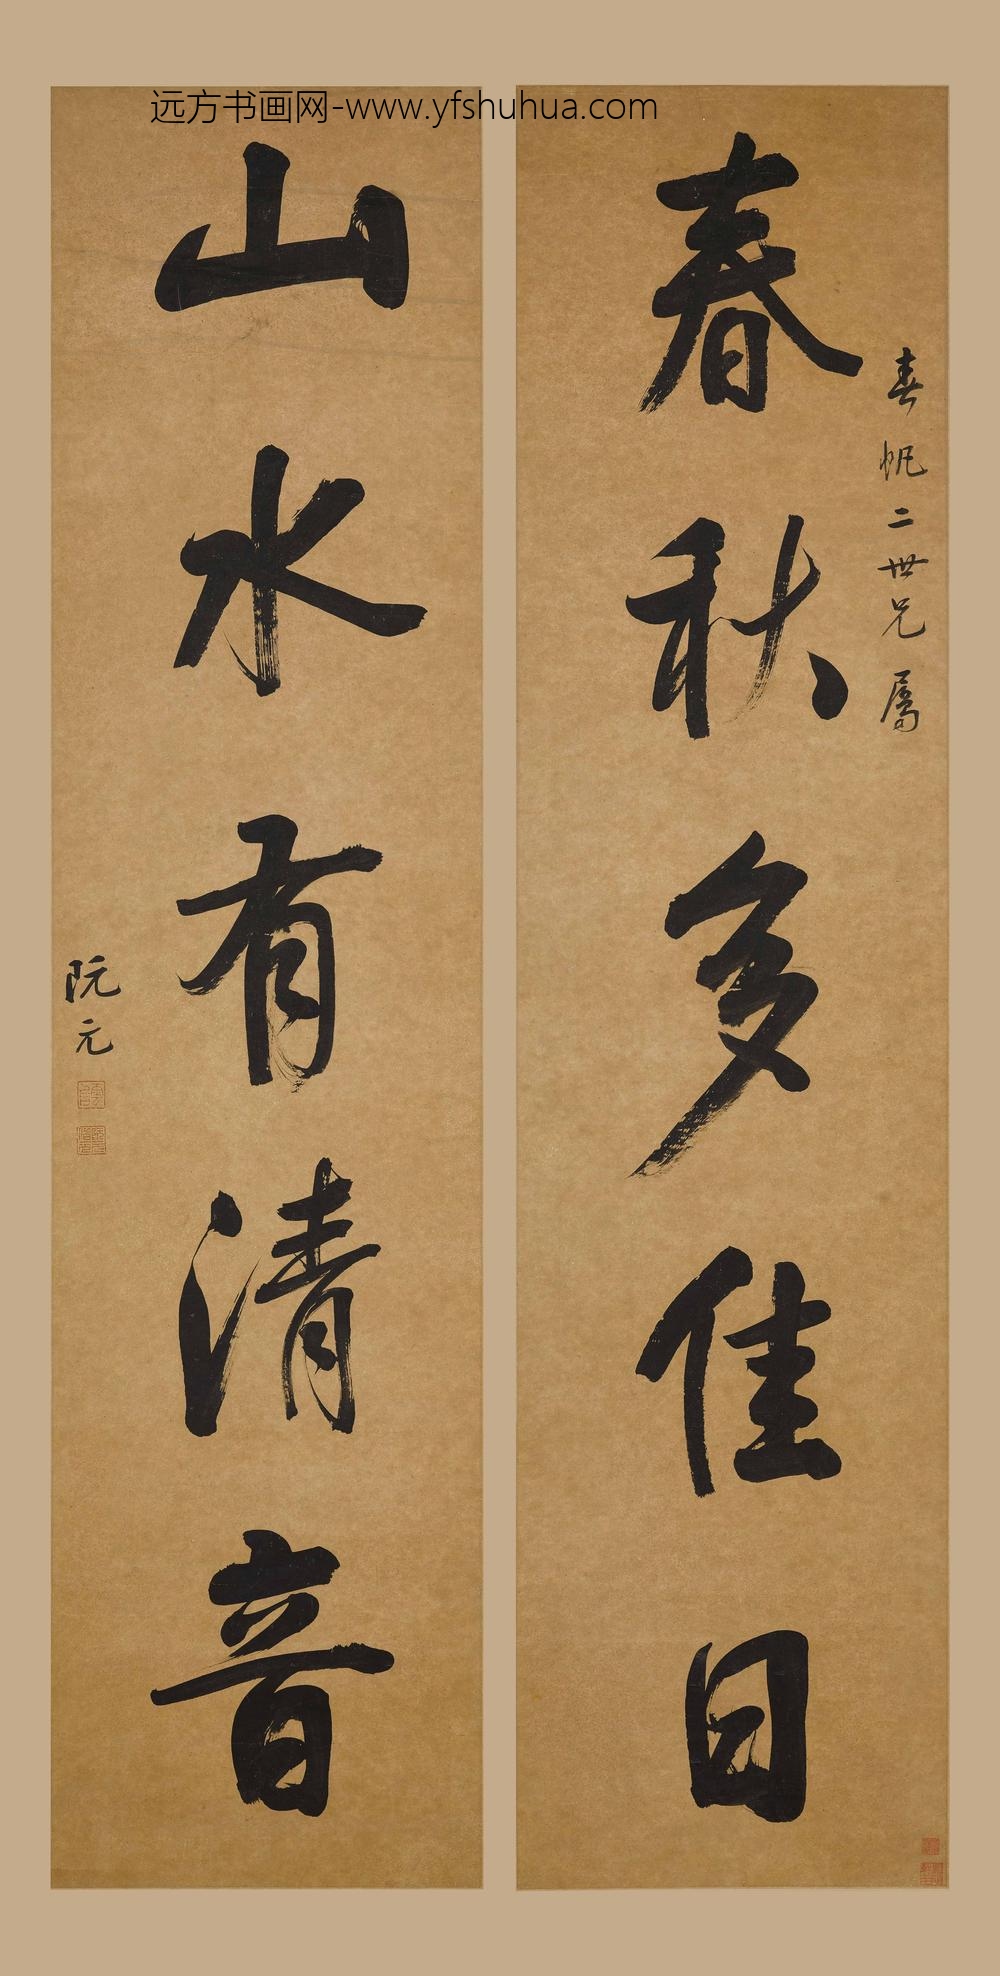 远方书画网-www.yfshuhua.com
春帆二世兄属
春秋多佳日
山水有清音
阮元